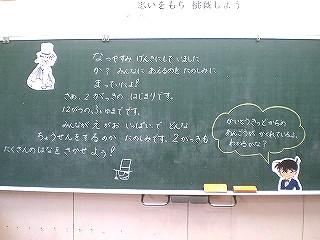 思いをもち 挑戦しよう
なつやすみ げんきにしていました
か? みんなに あえるのを たのしみに
まっていたよ!
さあ、2がっきの はじまりです。
12がつの ふゆまでです。
みんなが えがお いっぱいで どんな
ちょうせんをするのか たのしみです。2がっきも
たくさんのはなを さかせよう!
かいとうきっどからの
あんごうが かくれているよ。
わかるかな?